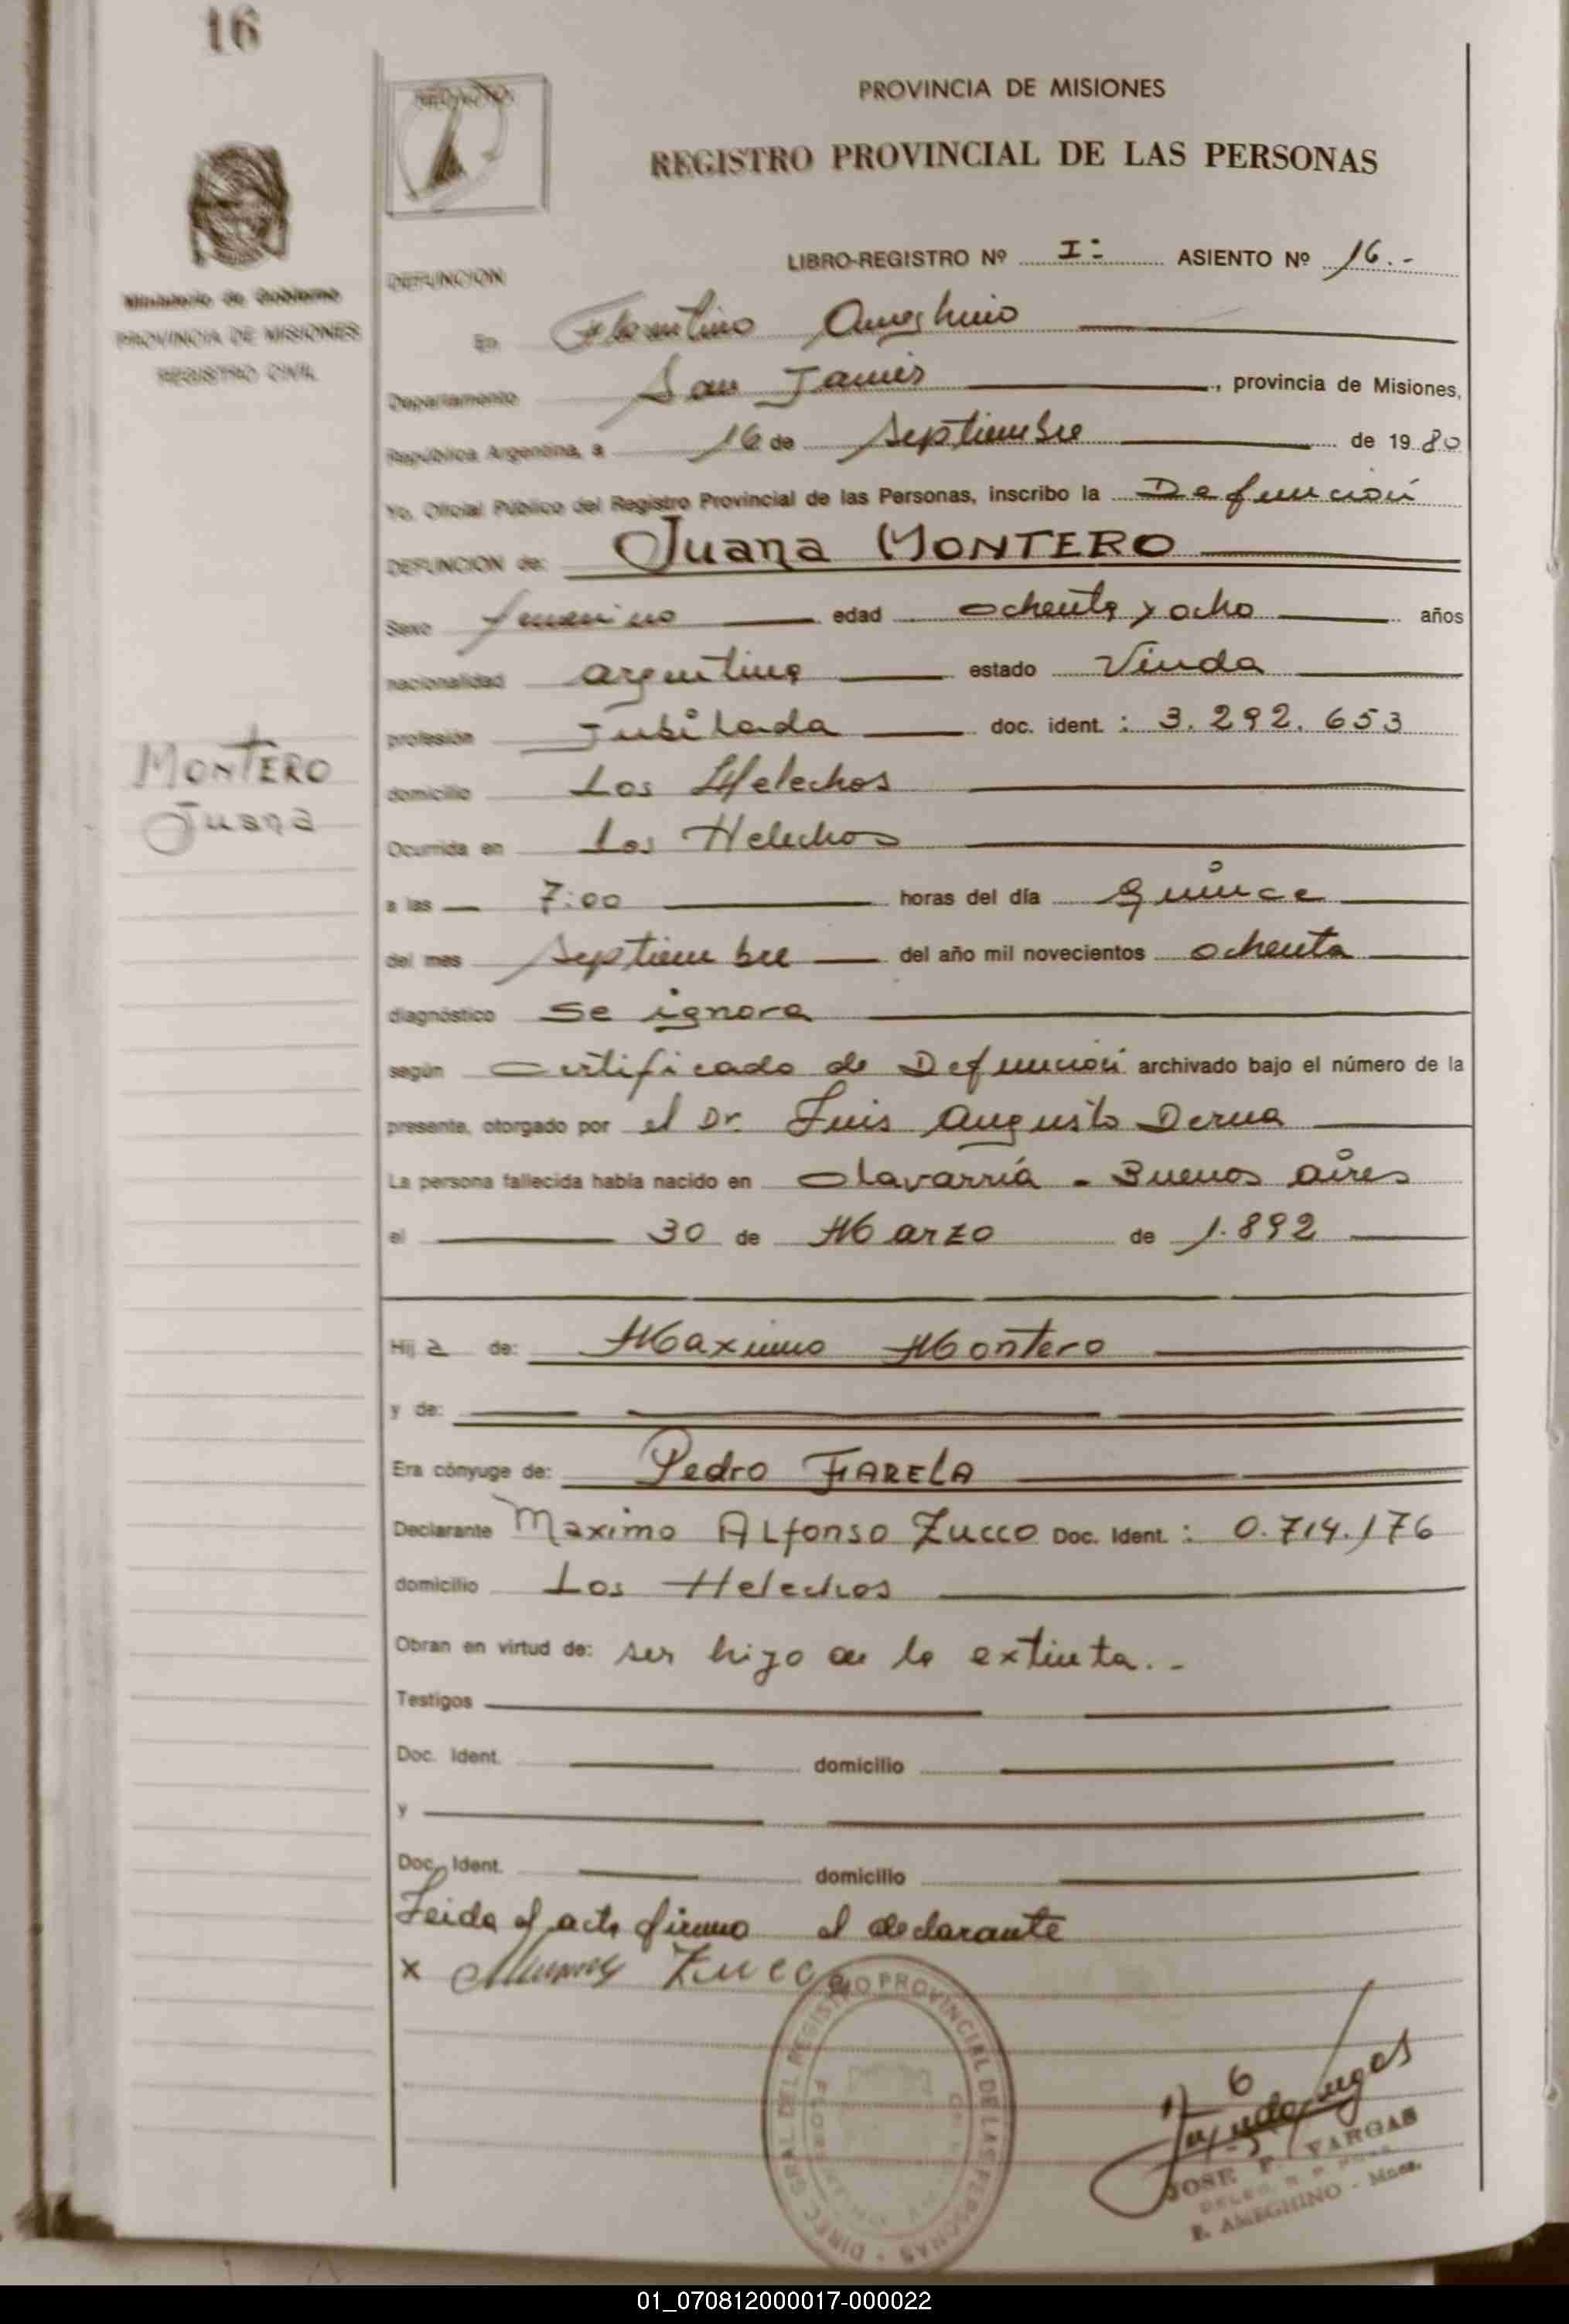 16
PROVINCIA DE MISIONES
REGISTRO PROVINCIAL DE LAS PERSONAS
Ministerio de Gobierno
PROVINCIA DE MISIONES
REGISTRO CIVIL
LIBRO-REGISTRO Nº I: ASIENTO Nº 16.-
DEFUNCION
En Florentino Ameghino
Departamento San Javier, provincia de Misiones,
República Argentina, a 16 de Septiembre de 1980
Yo, Oficial Público del Registro Provincial de las Personas, inscribo la Defunción
DEFUNCION de: Juana MONTERO
Sexo femenino edad ochenta y ocho años
nacionalidad argentina estado Viuda
profesión Jubilada doc. ident. : 3.292.653
MONTERO
Juana
domicilio Los Helechos
Ocurrida en Los Helechos
a las 7:00 horas del día quince
del mes Septiembre del año mil novecientos ochenta
diagnóstico se ignora
según certificado de Defunción archivado bajo el número de la
presente, otorgado por el Dr. Luis Augusto Derna
La persona fallecida había nacido en Olavarría - Buenos Aires
el 30 de Marzo de 1.892
Hija de: Maximo Montero
y de:
Era cónyuge de: Pedro FIARELA
Declarante Maximo ALfonso Zucco Doc. Ident. : 0.714.176
domicilio Los Helechos
Obran en virtud de: ser hijo de la extinta.-
Testigos
Doc. Ident. domicilio
y
Doc. Ident. domicilio
Leida el acta firmo el declarante
x Zucco
DIREC. GRAL DEL REGISTRO PROVINCIAL DE LAS PERSONAS
JOSE F. VARGAS
F. AMEGHINO - Mnes.
01_070812000017-000022